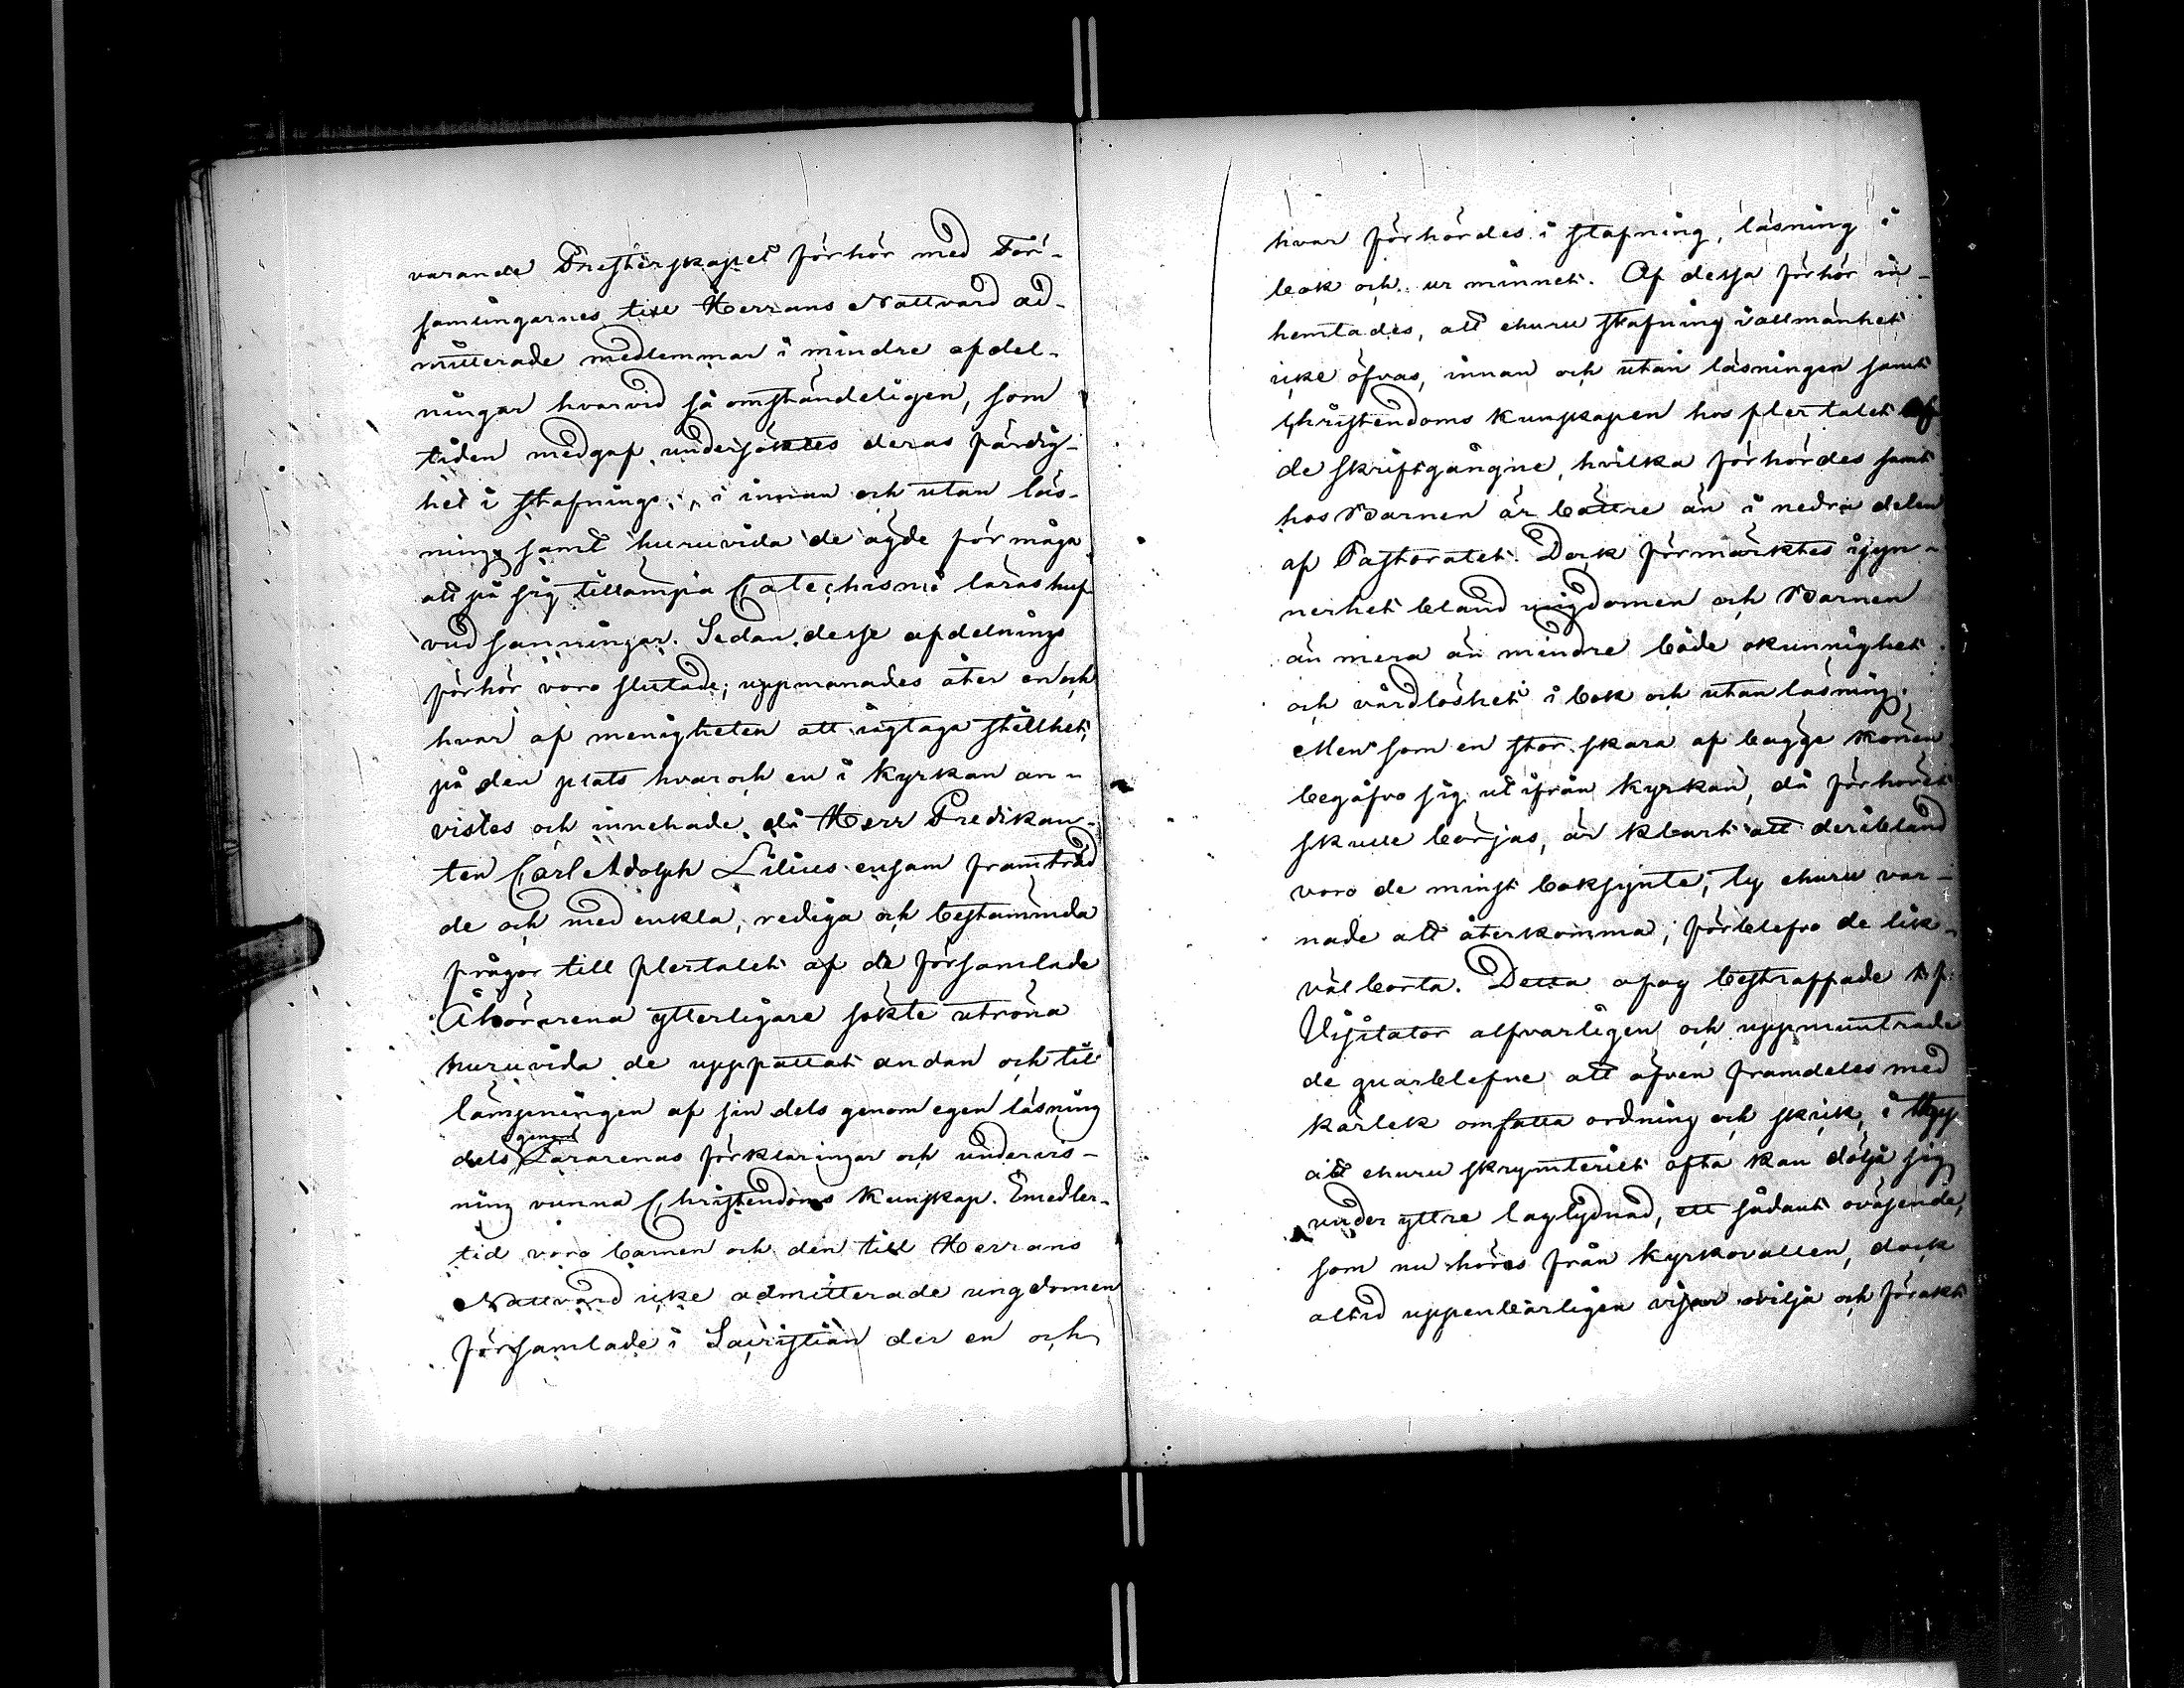 varande Presterskapet förhör med För-
samlingarnes till Herrans Nattvard ad-
mitterade medlemmar i mindre afdel-
ningar hvarvid så omständeligen, som
tiden medgaf undersöktes deras färdig-
het i stafnings, i innan och utan läs-
ning samt huruvida de ägde förmåga
att på sig tillämpa Catechismi läras huf
vud sanningar. Sedan desse afdelnings
förhör voro slutade, uppmanades åter en och
hvar af menigheten att iagtaga stillhet,
på den plats hvar och en i Kyrkan an-
vistes och innehade, då Herr Predikan-
ten Carl Adolph Lilius ensam framträd
de och med enkla, rediga och bestämmda
frågor till flertalet af de församlade
Åhörarena ytterligare sökte utröna
huruvida de uppfattat andan och till
lämpningen af sin dels genom egen läsning
dels genom Lärarenas förklaringar och undervis-
ning vunna Christendoms Kunskap. Emedler-
tid voro barnen och den till Herrans
Nattvard icke admitterade ungdomen
församlade i Sacristian der en och
hvar förhördes i stafning, läsning i
bok och ur minnet. Af dessa förhör in-
hemtades, att ehuru stafning i allmänhet
icke öfvas, innan och utan läsningen samt
Christendoms Kunskapen hos flertalet af
de skriftgångne, hvilka förhördes samt
hos Barnen är bättre än i nedra delen
af Pastoratet. Dock förmärktes isyn-
nerhet bland ungdomen och Barnen
än mera än mindre både okunnighet
och vårdlöshet i bok och utan läsning.
Men som en stor skara af bägge Könen
begåfvo sig ut ifrån Kyrkan, då förhöret
skulle börjas, är klart att deribland
voro de minst boksynte, ty ehuru var-
nade att återkomma, förblefvo de lik-
väl borta. Detta ofog bestraffade
Visitator alfvarligen och uppmuntrade
de quarblefne att äfven framdeles med
kärlek omfatta ordning och skick, i
att ehuru skrymteriet ofta kan dölja sig
under yttre laglydnad, ett sådant oväsende,
som nu höres från Kyrkovallen, dock
altid uppenbarligen visar ovilja och förakt